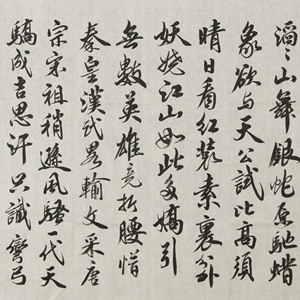 滔〻山舞銀蛇原馳蜡
象欲与天公試比高須
晴日看紅裝素裹分外
妖嬈江山如此多嬌引
無數英雄竞折腰惜
秦皇漢武畧輸文采唐
宗宋祖稍遜風騷一代天
驕成吉思汗只識彎弓